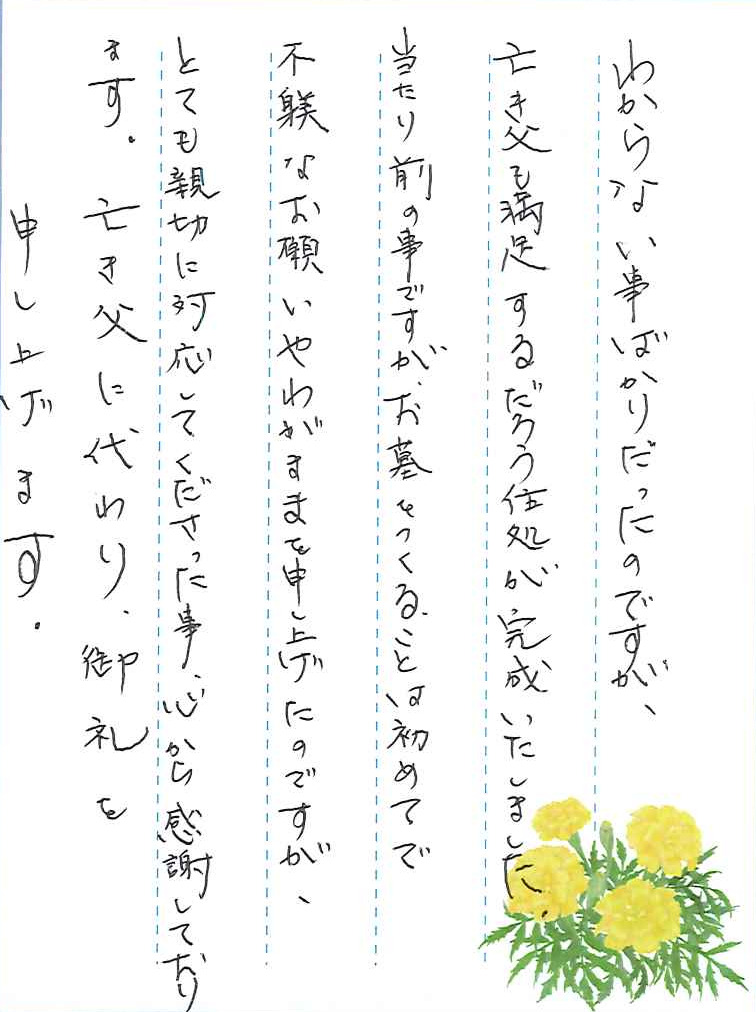 わからない事ばかりだったのですが、
亡き父も満足するだろう住処が完成いたしました。
当たり前の事ですが、お墓をつくることは初めてで
不躾なお願いやわがままを申し上げたのですが、
とても親切に対応してくださった事、心から感謝しており
ます。亡き父に代わり、御礼を
申し上げます。